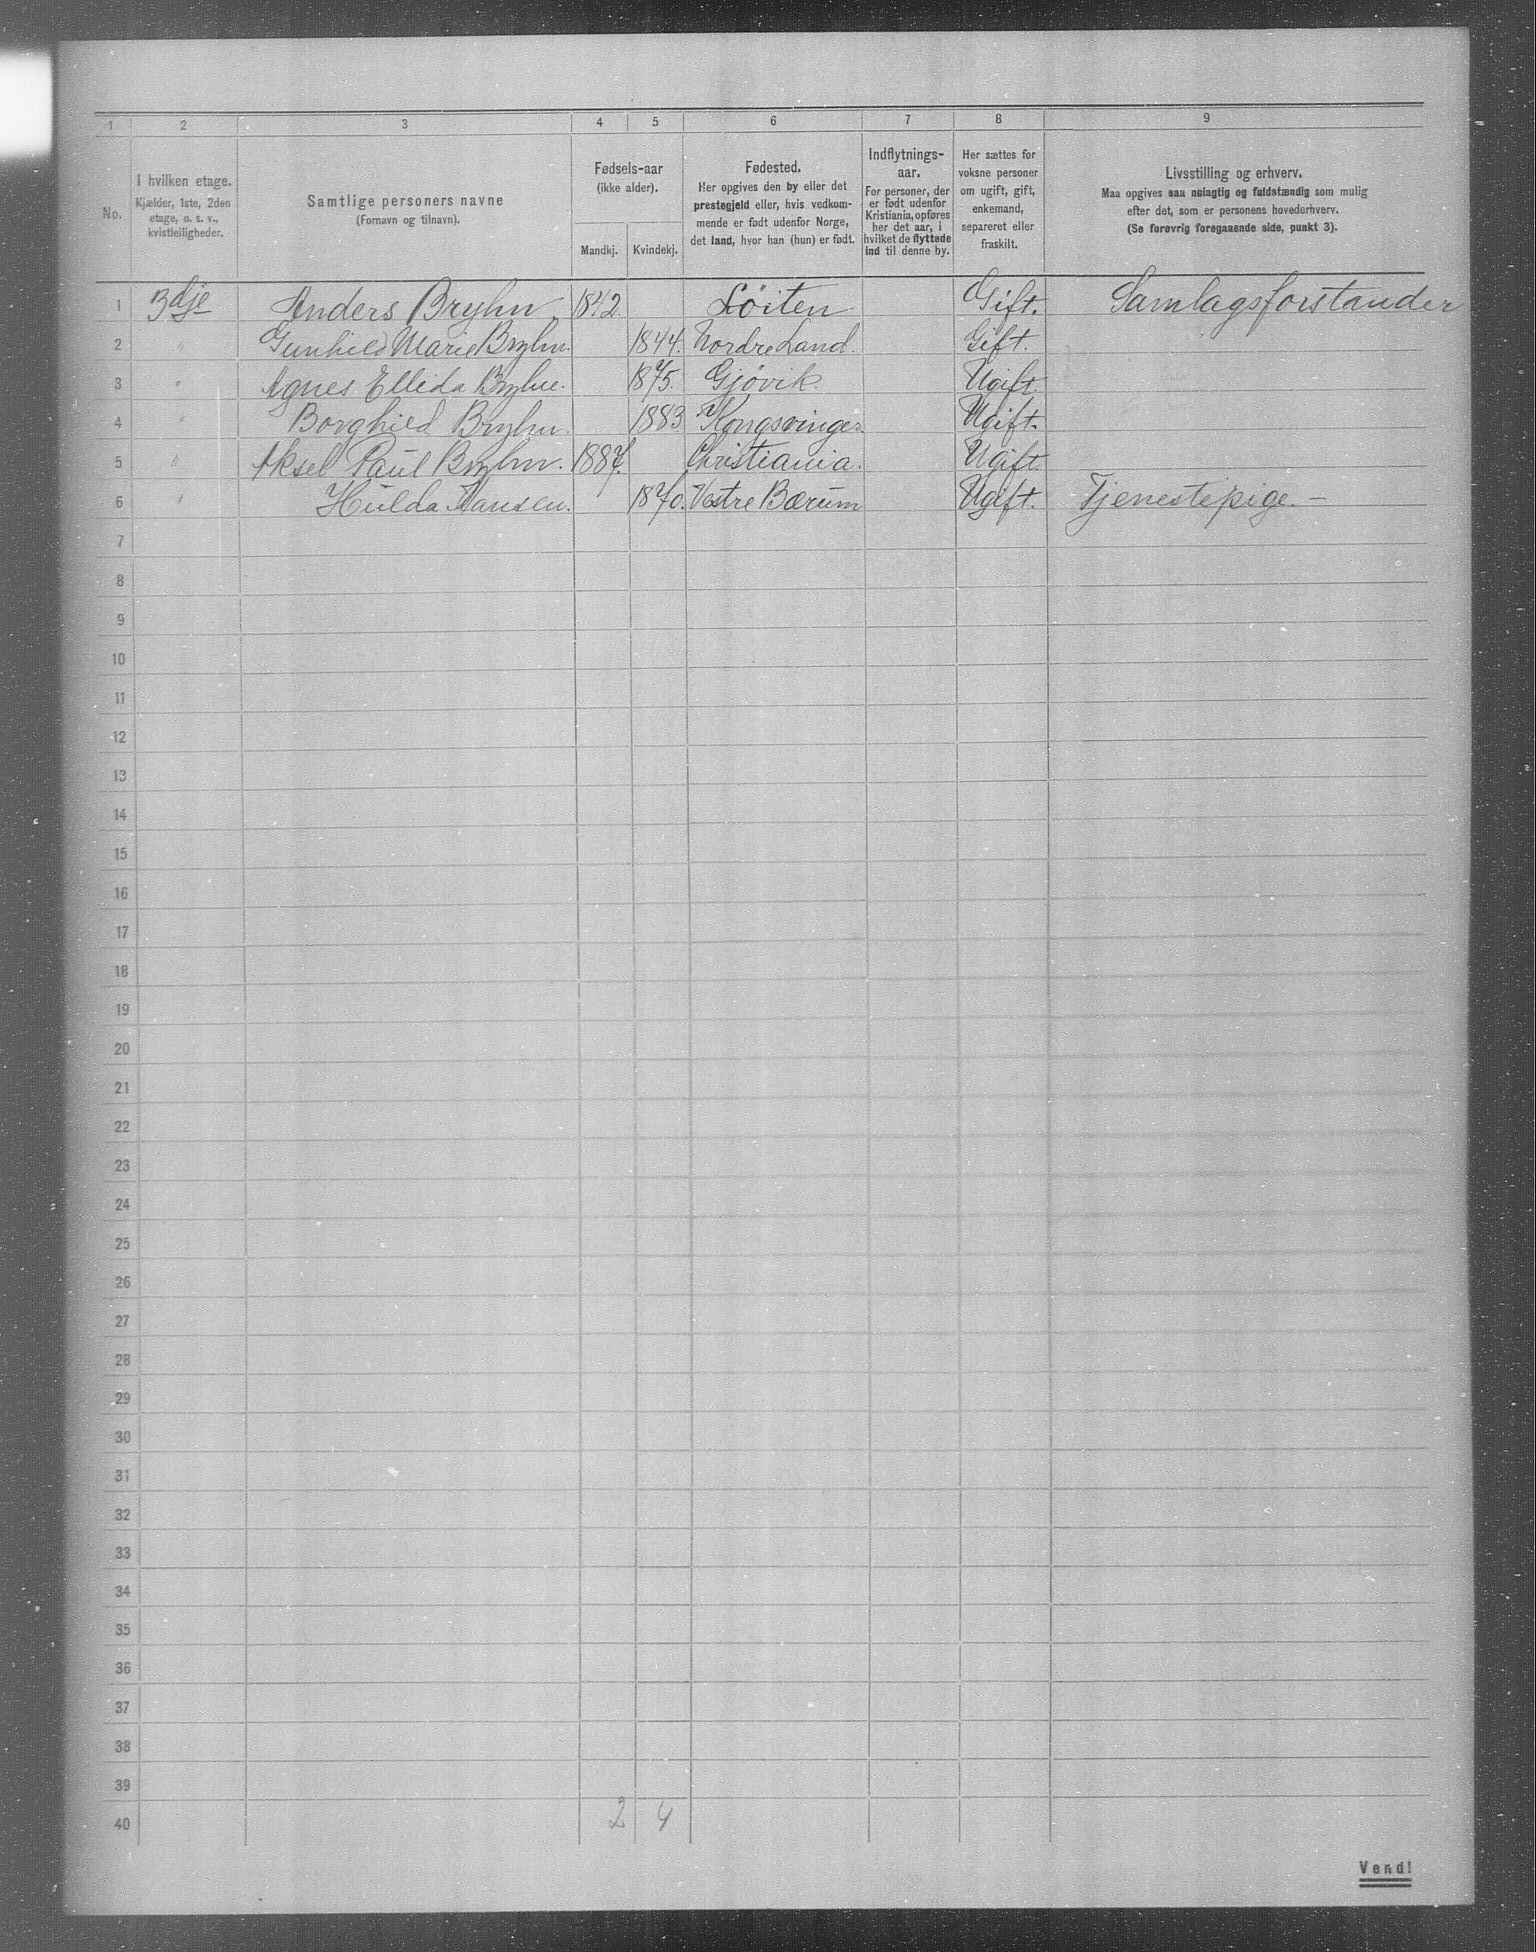 1 2 3 4 5 6 7 8 9
No.
I hvilken etage.
Kjælder, 1ste, 2den
etage, o. s. v.,
kvistleiligheder.
Samtlige personers navne
(Fornavn og tilnavn).
Fødsels-aar
(ikke alder).
Mandkj. Kvindekj.
Fødested.
Her opgives den by eller det
prestegjeld eller, hvis vedkom-
mende er født udenfor Norge,
det land, hvor han (hun) er født.
Indflytnings-
aar.
For personer, der
er født udenfor
Kristiania, opføres
her det aar, i
hvilket de flyttede
ind til denne by.
Her sættes for
voksne personer
om ugift, gift,
enkemand,
separeret eller
fraskilt.
Livsstilling og erhverv.
Maa opgives saa nøiagtig og fuldstændig som mulig
efter det, som er personens hovederhverv.
(Se forøvrig foregaaende side, punkt 3).
1 3dje Anders Bryhn 1842. Løiten Gift. Samlagsforstander
2 " Gunhild Marie Bryhn. 1844. Nordre Land. Gift.
3 " Agnes Ellida Bryhn. 1875. Gjøvik. Ugift.
4 " Borghild Bryhn. 1883 Kongsvinger. Ugift.
5 " Aksel Paul Bryhn. 1887. Christiania. Ugift.
6 " Hulda Hansen. 1870. Vestre Bærum Ugift. Tjenestepige. –
7
8
9
10
11
12
13
14
15
16
17
18
19
20
21
22
23
24
25
26
27
28
29
30
31
32
33
34
35
36
37
38
39
40 2 4
Vend!